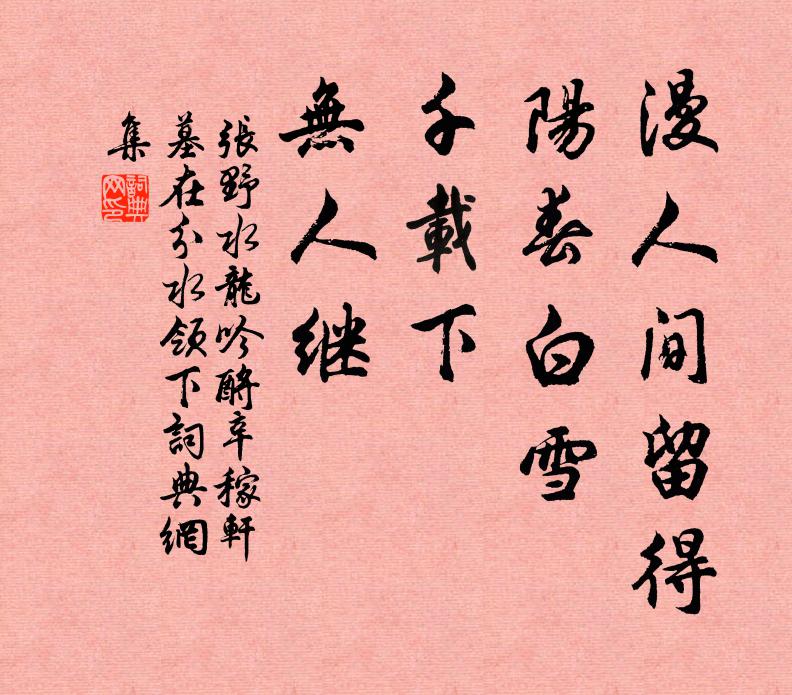 漫人間留得
陽春白雪
千載下
無人继
張野水龍吟酹辛稼軒
墓在分水領下詞典網
集
詞典
网印